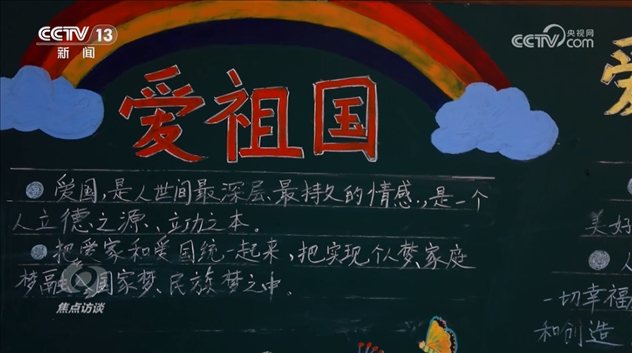 CCTV 13
新闻
央视网
CCTV.com
爱祖国
爱国,是人世间最深层、最持久的情感,是一个
人立德之源、立功之本。
把爱家和爱国统一起来,把实现个人梦、家庭
梦融 国家梦、民族梦之中。
美好
人
一切幸福
和创造
焦点访谈